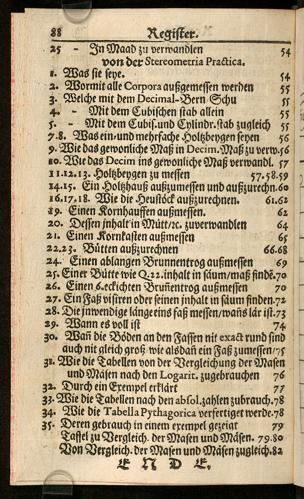 88 Register.
25 - In Maad zu verwandlen 54
von der Stereometria Practica.
1. Was sie seye. 54
2. Wormit alle Corpora außgemessen werden 55
3. Welche mit dem Decimal-Bern Schu 55
4. - Mit dem Cubischen stab allein 55
5. - Mit dem Cubis. und Cylindr. stab zugleich 55
7.8. Was ein, und mehrfache Holtzbeygen seyen 56
9. Wie das gewonliche Maß in Decim. Maß zu verw. 56
10. Wie das Decim ins gewonliche Maß verwandl. 57
11.12.13. Holtzbeygen zu messen 57.58.59
14.15. Ein Holtzhauß außzumessen und außzurechn. 60
16.17.18. Wie die Heustöck außzurechnen. 61.62
19. Einen Kornhauffen außmessen. 62
20. Dessen jnhalt in Mütt/ꝛc. zuverwandlen 64
21. Einen Kornkasten außmessen 65
22.23. Bütten außzurechnen 66.68
24. Einen ablangen Brunnentrog außmessen 69
25. Einer Bütte wie Q.22. inhalt in säum/maß findē. 70
26. Einen 6. eckichten Bruñentrog außmessen 70
27. Ein Faß visiren oder seinen jnhalt in säum finden. 72
28. Die jnwendige länge eins faß messen/wañs lär ist. 73
29. Wann es voll ist 74
30. Wañ die Böden an den Fassen nit exact rund sind
auch nit gleich groß wie alsdañ ein Faß zumessen/ 75
31. Wie die Tabellen von der Vergleichung der Masen
und Mäsen nach den Logarit. zugebrauchen 76
32. Durch ein Exempel erklärt 77
33. Wie die Tabellen nach den absol. zahlen zubrauch. 78
34. Wie die Tabella Pythagorica verfertiget werde. 78
35. Deren gebrauch in einem exempel gezeiget 79
Taffel zu Vergleich. der Masen und Mäsen. 79.80
Von Vergleich. der Masen und Mäsen zugleich. 82
ENDE.